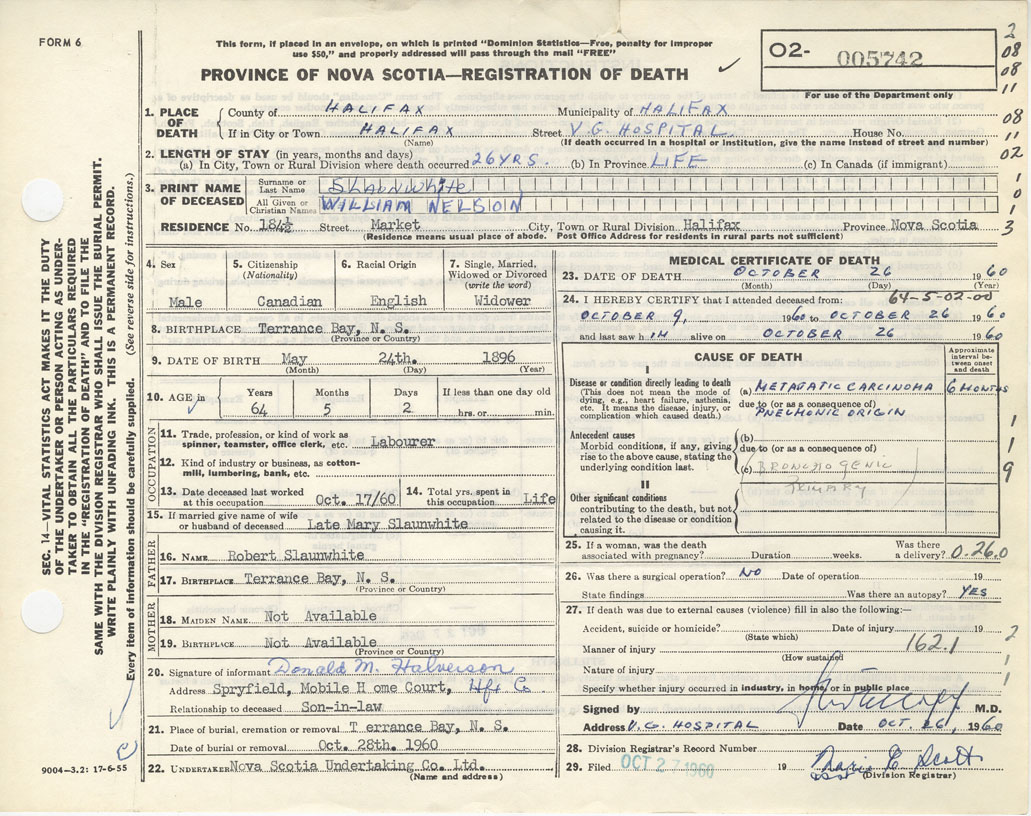 FORM 6
This form, if placed in an envelope, on which is printed "Dominion Statistics—Free, penalty for improper
use $50," and properly addressed will pass through the mail "FREE"
PROVINCE OF NOVA SCOTIA—REGISTRATION OF DEATH
O2- 005742
For use of the Department only
2
08
08
11
08
11
02
1
0
1
3
1. PLACE OF DEATH
County of HALIFAX Municipality of HALIFAX
If in City or Town HALIFAX Street V.G. HOSPITAL House No.
(Name) (If death occurred in a hospital or institution, give the name instead of street and number)
2. LENGTH OF STAY (in years, months and days)
(a) In City, Town or Rural Division where death occurred 26 YRS. (b) In Province LIFE (c) In Canada (if immigrant)
3. PRINT NAME OF DECEASED
Surname or Last Name SLAUNWHITE
All Given or Christian Names WILLIAM NELSOIN
RESIDENCE No. 184½ Street Market City, Town or Rural Division Halifax Province Nova Scotia
(Residence means usual place of abode. Post Office Address for residents in rural parts not sufficient)
4. Sex Male
5. Citizenship (Nationality) Canadian
6. Racial Origin English
7. Single, Married, Widowed or Divorced (write the word) Widower
8. BIRTHPLACE Terrance Bay, N. S.
(Province or Country)
9. DATE OF BIRTH May 24th. 1896
(Month) (Day) (Year)
10. AGE in Years 64 Months 5 Days 2 If less than one day old hrs. or min.
OCCUPATION
11. Trade, profession, or kind of work as spinner, teamster, office clerk, etc. Labourer
12. Kind of industry or business, as cotton-mill, lumbering, bank, etc.
13. Date deceased last worked at this occupation Oct. 17/60
14. Total yrs. spent in this occupation Life
15. If married give name of wife or husband of deceased Late Mary Slaunwhite
FATHER
16. NAME Robert Slaunwhite
17. BIRTHPLACE Terrance Bay, N. S.
(Province or Country)
MOTHER
18. MAIDEN NAME Not Available
19. BIRTHPLACE Not Available
(Province or Country)
20. Signature of informant Donald M. Halverson
Address Spryfield, Mobile H ome Court, Hfx Co.
Relationship to deceased Son-in-law
21. Place of burial, cremation or removal T errance Bay, N. S.
Date of burial or removal Oct. 28th. 1960
22. UNDERTAKER Nova Scotia Undertaking Co. Ltd.
(Name and address)
MEDICAL CERTIFICATE OF DEATH
23. DATE OF DEATH OCTOBER 26 1960
(Month) (Day) (Year)
64-5-02-00
24. I HEREBY CERTIFY that I attended deceased from:
OCTOBER 9, 1960 to OCTOBER 26 1960
and last saw h IM alive on OCTOBER 26 1960
CAUSE OF DEATH
Approximate interval between onset and death
I
Disease or condition directly leading to death
(This does not mean the mode of dying, e.g., heart failure, asthenia, etc. It means the disease, injury, or complication which caused death.)
(a) METATATIC CARCINOMA 6 MONTHS
due to (or as a consequence of)
PNEUMONIC ORIGIN
Antecedent causes
Morbid conditions, if any, giving rise to the above cause, stating the underlying condition last.
(b)
due to (or as a consequence of)
(c) BRONCHOGENIC
PRIMARY
II
Other significant conditions
contributing to the death, but not related to the disease or condition causing it.
1
1
9
25. If a woman, was the death associated with pregnancy? Duration weeks. Was there a delivery? 0.26.0
26. Was there a surgical operation? NO Date of operation 19
State findings Was there an autopsy? YES
27. If death was due to external causes (violence) fill in also the following:—
Accident, suicide or homicide? Date of injury 19
(State which)
Manner of injury 162.1
(How sustained)
Nature of injury
Specify whether injury occurred in industry, in home, or in public place
2
1
1
Signed by M.D.
Address V.G. HOSPITAL Date OCT. 26, 1960
28. Division Registrar's Record Number
29. Filed OCT 27 1960 19 Scott
(Division Registrar)
SEC. 14—VITAL STATISTICS ACT MAKES IT THE DUTY
OF THE UNDERTAKER OR PERSON ACTING AS UNDER-
TAKER TO OBTAIN ALL THE PARTICULARS REQUIRED
IN THE "REGISTRATION OF DEATH" AND TO FILE THE
SAME WITH THE DIVISION REGISTRAR WHO SHALL ISSUE THE BURIAL PERMIT.
WRITE PLAINLY WITH UNFADING INK. THIS IS A PERMANENT RECORD.
Every item of information should be carefully supplied. (See reverse side for instructions.)
9004—3.2: 17-6-55